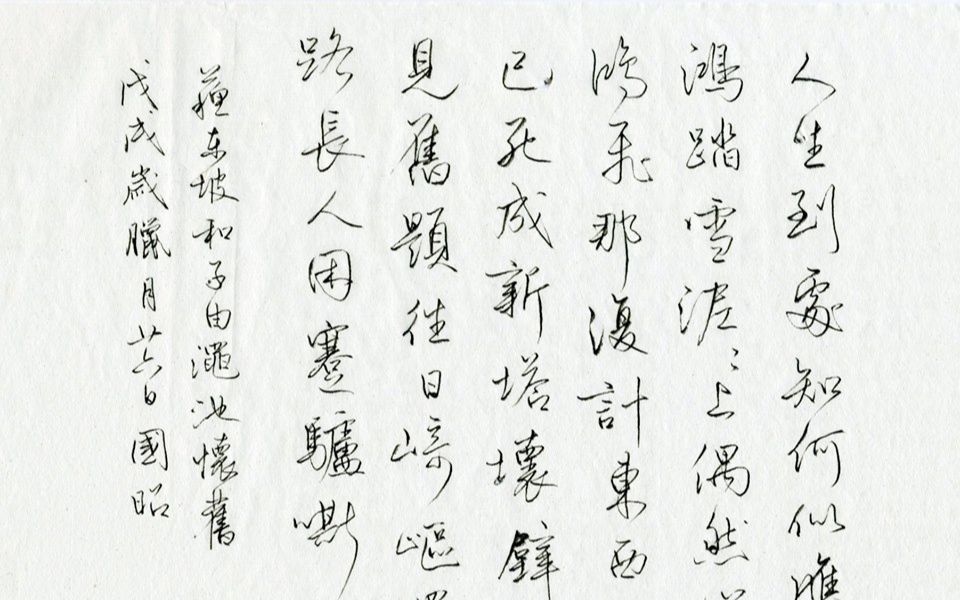 人生到處知何似
鴻踏雪泥〻上偶然
鴻飛那復計東西
已死成新塔壞壁
見舊題往日崎嶇
路長人困蹇驢嘶
蘇东坡和子由澠池懷舊
戊戌歲臘月廿六日國昭